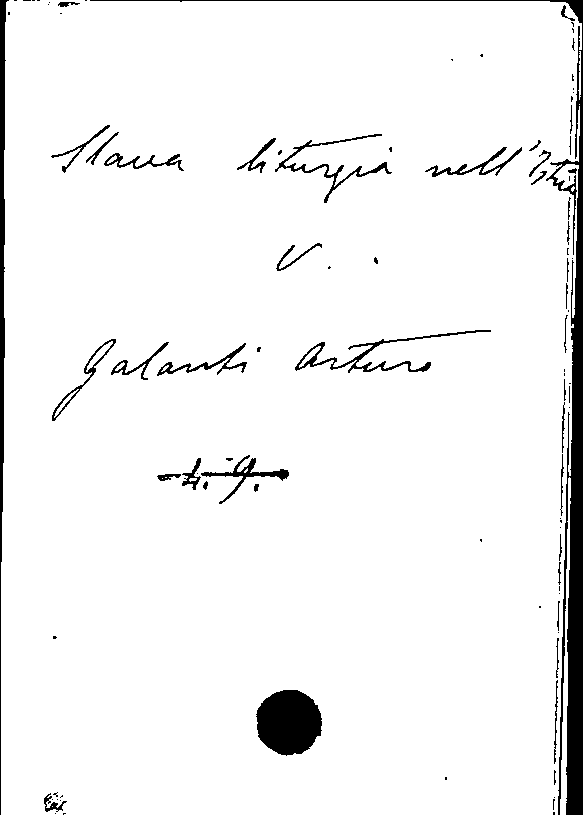 Slava liturgia nell'Istria
V.
Galanti Arturo
4. 9.